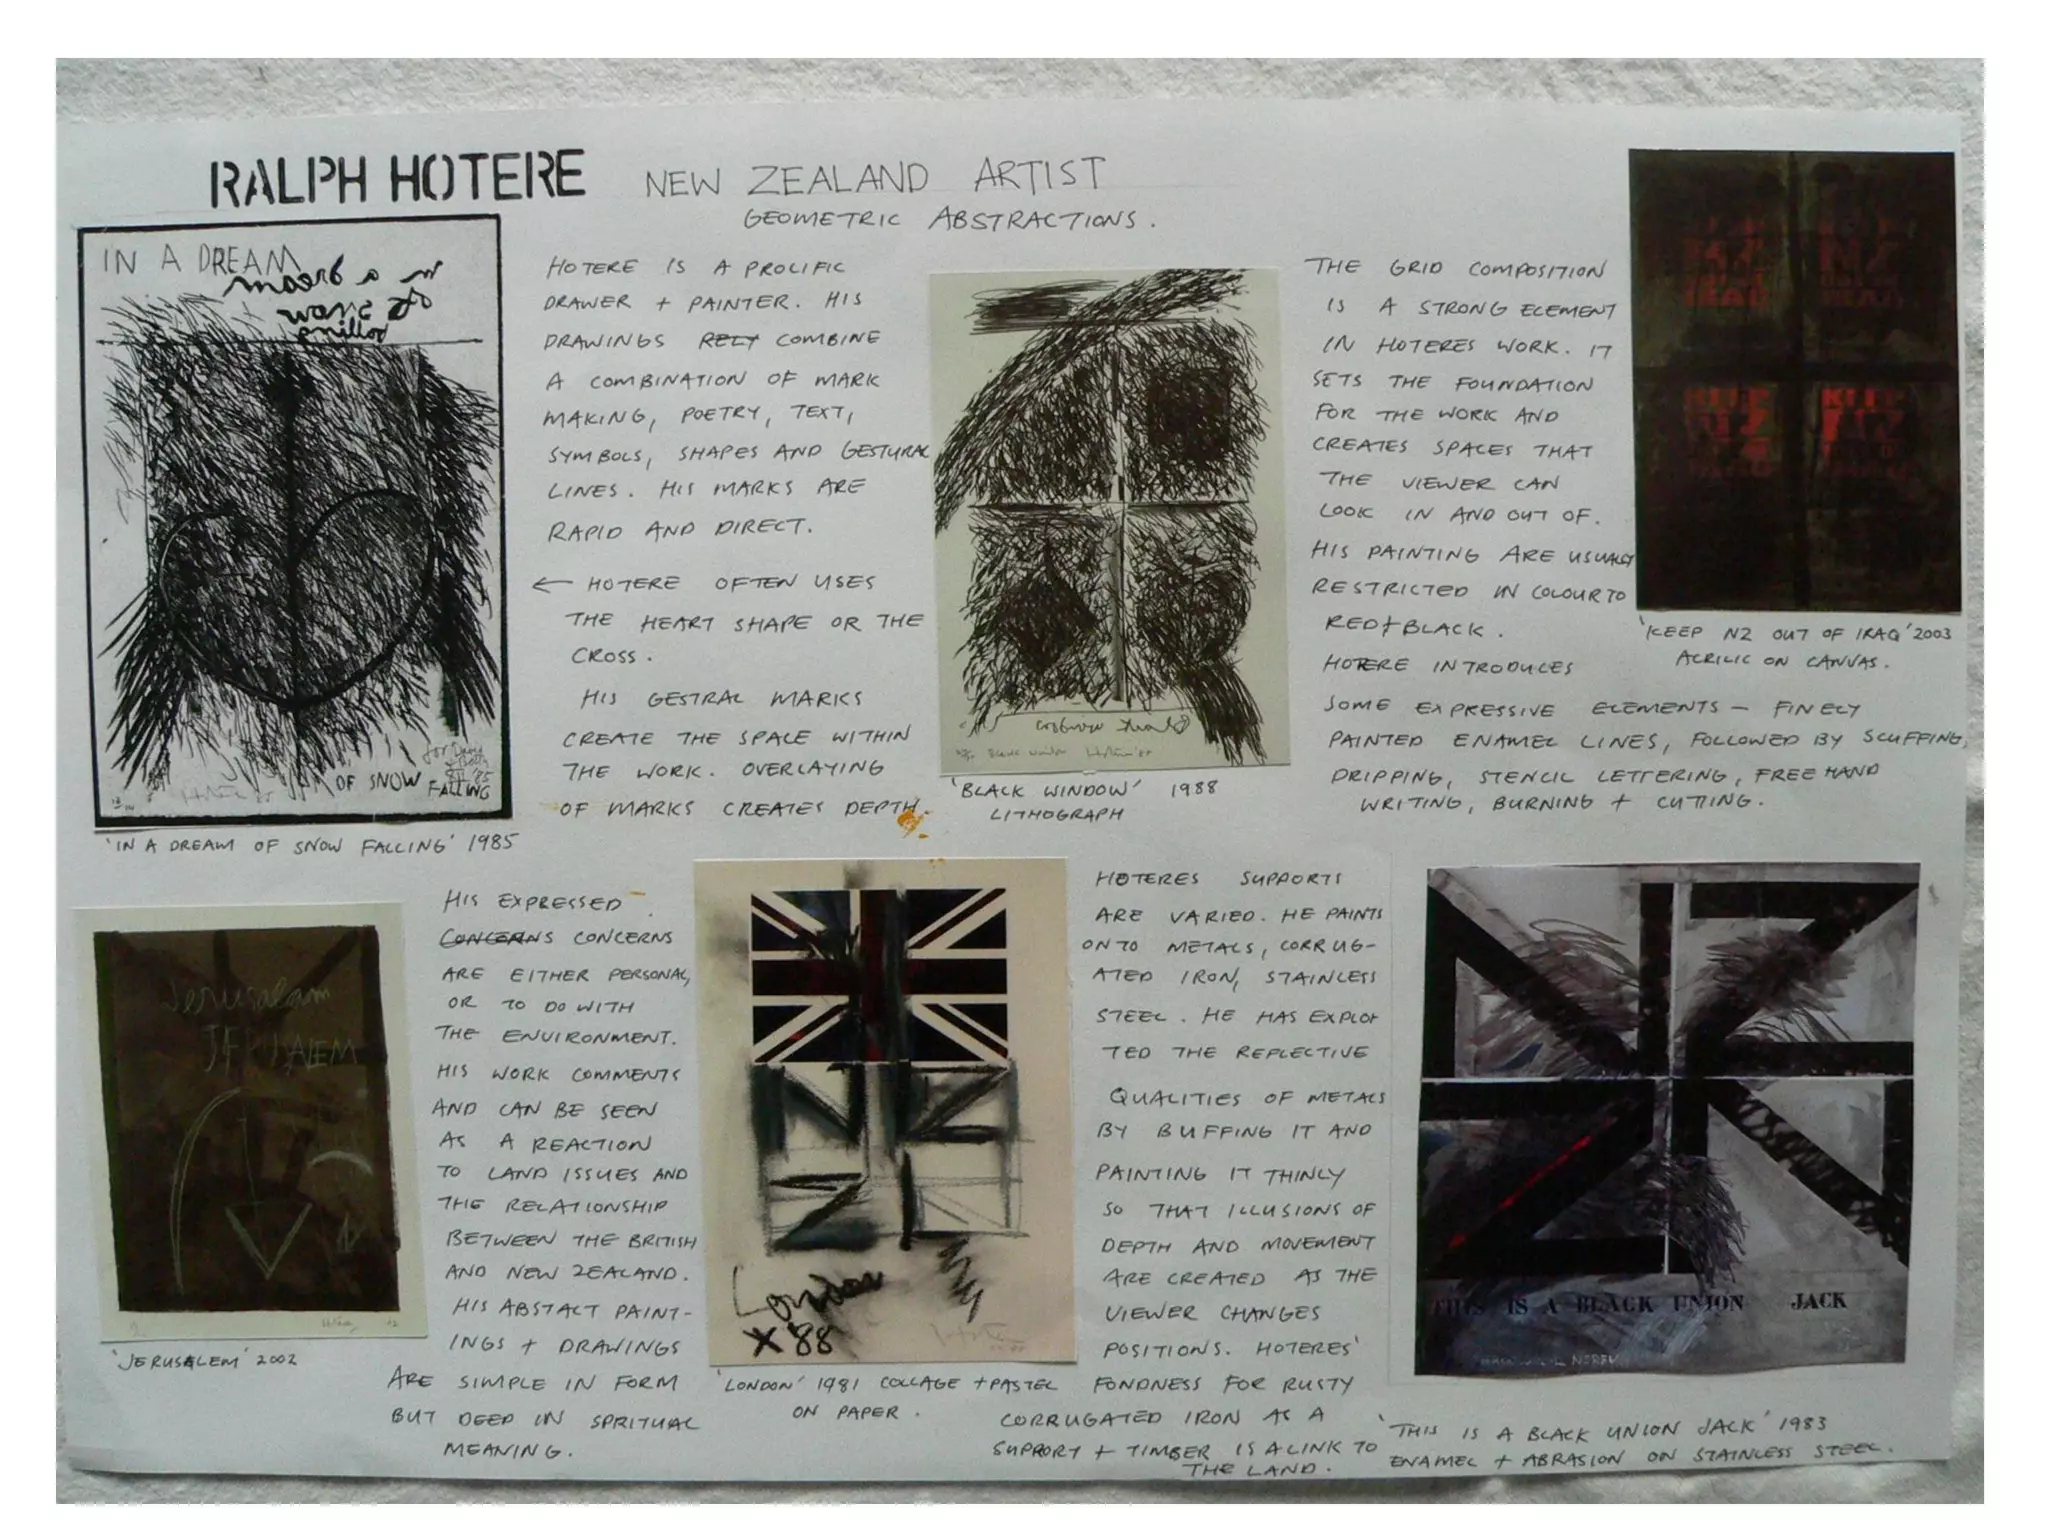 RALPH HOTERE NEW ZEALAND ARTIST
GEOMETRIC ABSTRACTIONS.
IN A DREAM
OF SNOW
FALLING
'IN A DREAM OF SNOW FALLING' 1985
HOTERE IS A PROLIFIC
DRAWER + PAINTER. HIS
DRAWINGS RELY COMBINE
A COMBINATION OF MARK
MAKING, POETRY, TEXT,
SYMBOLS, SHAPES AND GESTURAL
LINES. HIS MARKS ARE
RAPID AND DIRECT.
← HOTERE OFTEN USES
THE HEART SHAPE OR THE
CROSS.
HIS GESTRAL MARKS
CREATE THE SPACE WITHIN
THE WORK. OVERLAYING
OF MARKS CREATES DEPTH.
'BLACK WINDOW' 1988
LITHOGRAPH
THE GRID COMPOSITION
IS A STRONG ELEMENT
IN HOTERES WORK. IT
SETS THE FOUNDATION
FOR THE WORK AND
CREATES SPACES THAT
THE VIEWER CAN
LOOK IN AND OUT OF.
HIS PAINTING ARE USUALLY
RESTRICTED IN COLOUR TO
RED + BLACK.
HOTERE INTRODUCES
SOME EXPRESSIVE ELEMENTS - FINELY
PAINTED ENAMEL LINES, FOLLOWED BY SCUFFING,
DRIPPING, STENCIL LETTERING, FREE HAND
WRITING, BURNING + CUTTING.
KEEP
NZ
IRAQ
'KEEP NZ OUT OF IRAQ' 2003
ACRILIC ON CANVAS.
Jerusalem
JERUSALEM
'JERUSALEM' 2002
HIS EXPRESSED
CONCERNS CONCERNS
ARE EITHER PERSONAL,
OR TO DO WITH
THE ENVIRONMENT.
HIS WORK COMMENTS
AND CAN BE SEEN
AS A REACTION
TO LAND ISSUES AND
THE RELATIONSHIP
BETWEEN THE BRITISH
AND NEW ZEALAND.
HIS ABSTACT PAINT-
INGS + DRAWINGS
ARE SIMPLE IN FORM
BUT DEEP IN SPRITUAL
MEANING.
London
X '88
'LONDON' 1981 COLLAGE + PASTEL
ON PAPER.
HOTERES SUPPORTS
ARE VARIED. HE PAINTS
ONTO METALS, CORRUG-
ATED IRON, STAINLESS
STEEL. HE HAS EXPLOI
TED THE REFLECTIVE
QUALITIES OF METALS
BY BUFFING IT AND
PAINTING IT THINLY
SO THAT ILLUSIONS OF
DEPTH AND MOVEMENT
ARE CREATED AS THE
VIEWER CHANGES
POSITIONS. HOTERES'
FONDNESS FOR RUSTY
CORRUGATED IRON AS A
SUPPORT + TIMBER IS A LINK TO
THE LAND.
THIS IS A BLACK UNION JACK
'THIS IS A BLACK UNION JACK' 1983
ENAMEL + ABRASION ON STAINLESS STEEL.